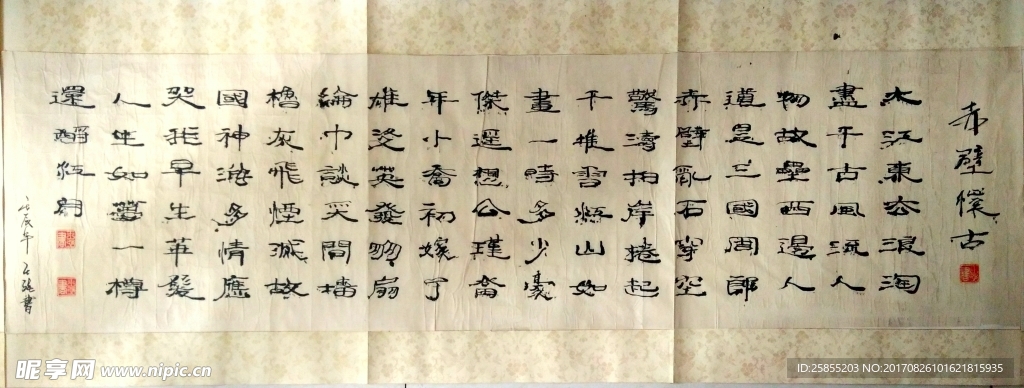 赤壁懷古
大江東去浪淘
盡千古風流人
物故壘西邊人
道是三國周郎
赤壁亂石穿空
驚濤拍岸捲起
千堆雪江山如
畫一時多少豪
傑遙想公瑾當
年小喬初嫁了
雄姿英發羽扇
綸巾談笑間檣
櫓灰飛煙滅故
國神游多情應
笑我早生華髮
人生如夢一樽
還酹江月
戊辰年 書
昵享网 www.nipic.cn
ID:25855203 NO:20170826101621815935